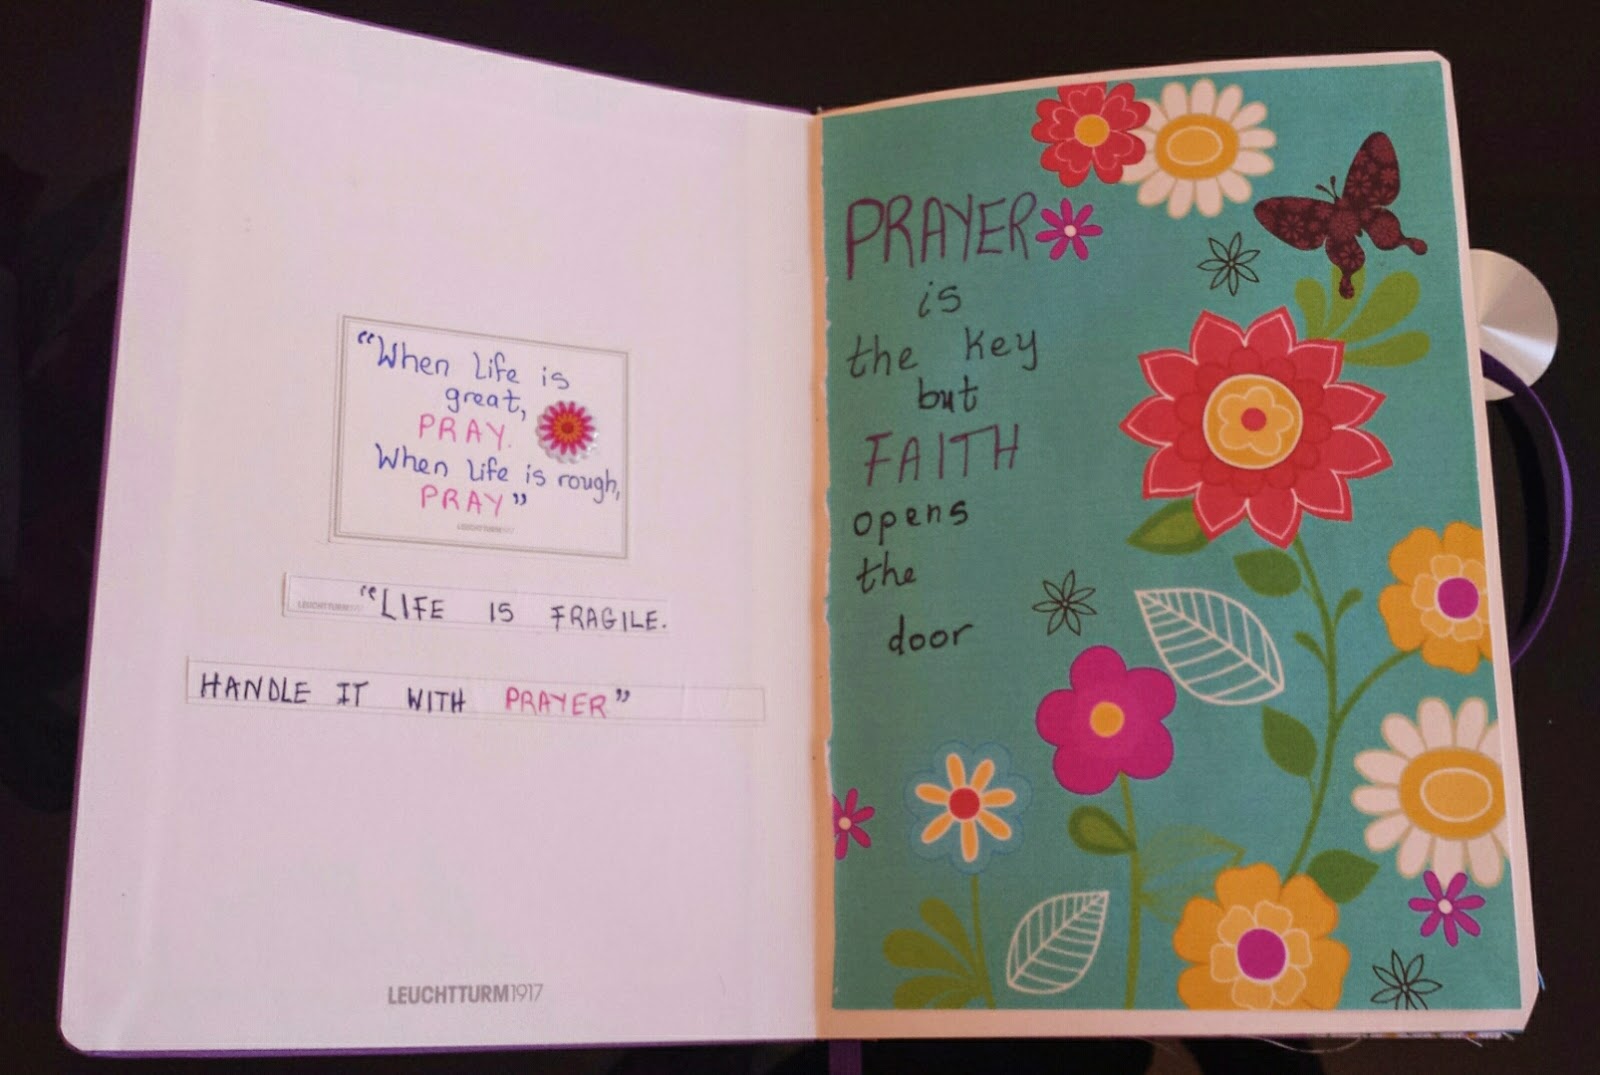 “When life is
great,
PRAY.
When life is rough,
PRAY”
LEUCHTTURM1917
LEUCHTTURM1917
“LIFE IS FRAGILE.
HANDLE IT WITH PRAYER”
LEUCHTTURM1917
PRAYER
is
the key
but
FAITH
opens
the
door